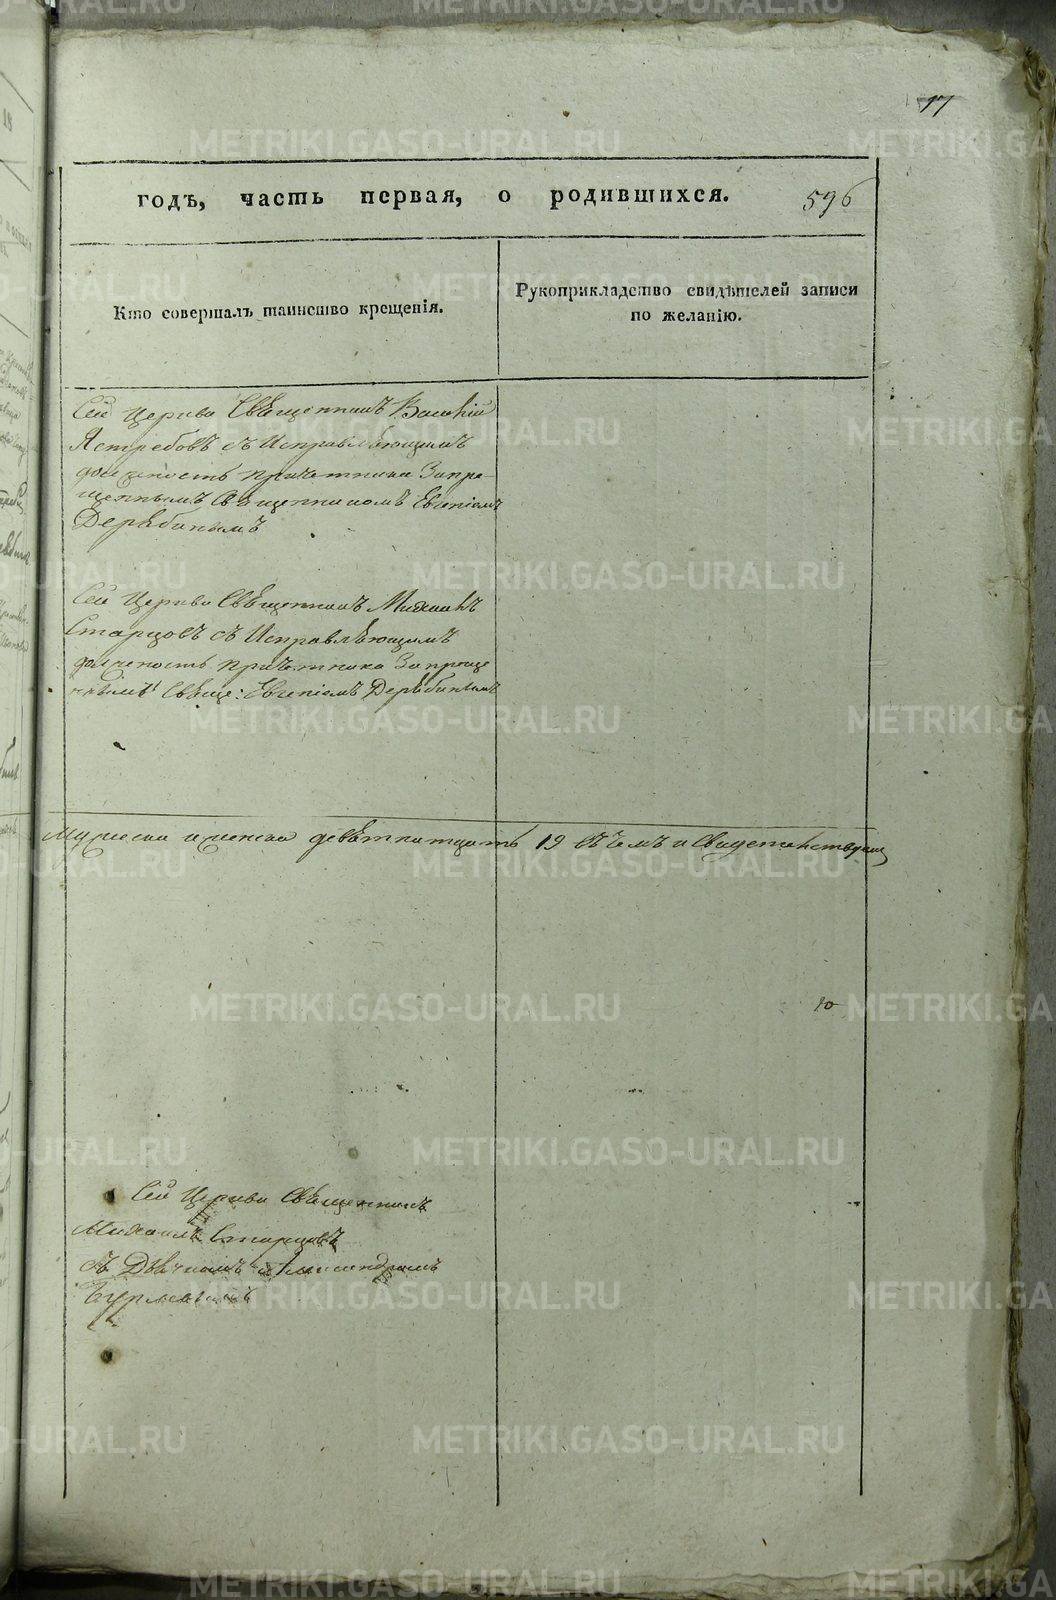 17
годъ, часть первая, о родившихся. 596
Кто совершалъ таинство крещенія.
Рукоприкладство свидѣтелей записи
по желанію.
Сей Церкви Свѣщенникъ Василій
Ястребовъ съ Исправлѣющимъ
должность причетника Запре-
щеннымъ Свѣщенникомъ Евгеніемъ
Дерѣбинымъ
Сей Церкви Свѣщенникъ Михаилъ
Старцовъ съ Исправлѣющимъ
должность причетника Запреще
ннымъ Свѣще: Евгеніемъ Дерѣбинымъ
девѣтнатцать 19 въ чемъ и Свидетельствуемъ
10
Сей Церкви Свѣщенникъ
Михаилъ Старцовъ
съ Дьячкомъ Александромъ
METRIKI.GASO-URAL.RU